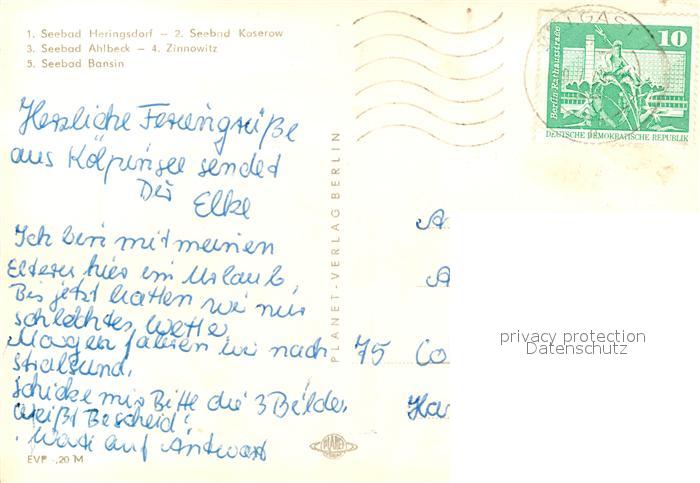 1. Seebad Heringsdorf — 2. Seebad Koserow
3. Seebad Ahlbeck — 4. Zinnowitz
5. Seebad Bansin
WOLGAST
Berlin-Rathausstraße
10
DEUTSCHE DEMOKRATISCHE REPUBLIK
Herzliche Feriengrüße
aus Kölpinsee sendet
Dir
Elke
Ich bin mit meinen
Eltern hier im Urlaub,
Bis jetzt hatten wir nur
schlechtes Wetter
Morgen fahren wir nach
Stralsund.
Schicke mir Bitte die 3 Bilder,
Weißt Bescheid!
Warte auf Antwort
PLANET-VERLAG BERLIN
A
A
75 Co
Ha
privacy protection
Datenschutz
EVP -,20 M
PLANET